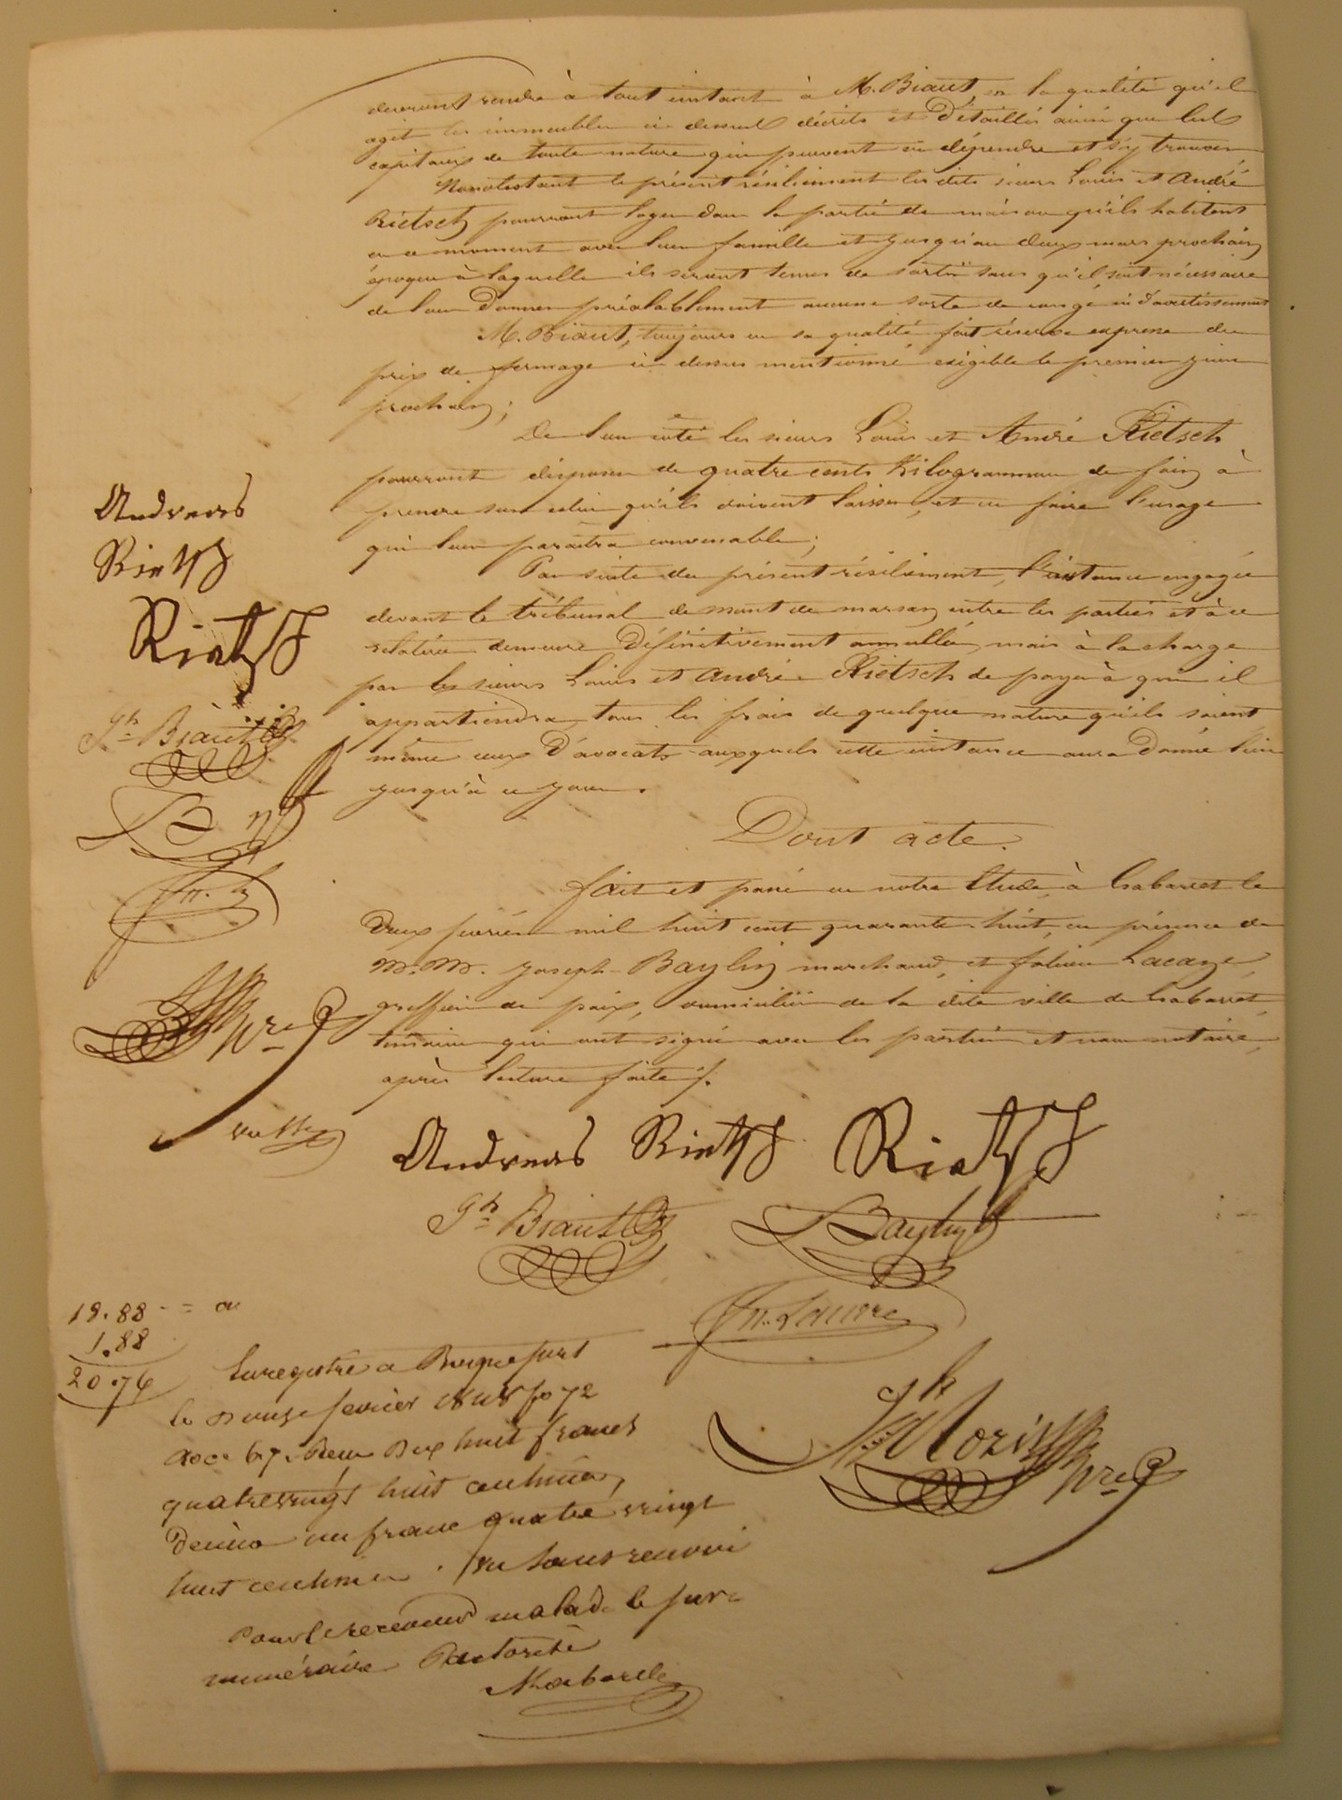 devront rendre à tout instant à M. Biaut, en la qualité qu'il
agit les immeubles ci dessus décrits et détaillés ainsi que les
capitaux de toute nature qui peuvent en dépendre et s'y trouver
Nonobstant le présent résiliement les dits sieurs Louis et André
Rietsch pourront loger dans la partie de maison qu'ils habitent
en ce moment avec leur famille et jusqu'au deux mars prochain,
époque à laquelle ils seront tenus de sortir sans qu'il soit nécessaire
de leur donner préalablement aucune sorte de congé, ni d'avertissement
M. Biaut, toujours en sa qualité fait réserve expresse du
prix de fermage ci dessus mentionné exigible le premier juin
prochain;
De leur coté les sieurs Louis et André Rietsch
pourront disposer de quatre cents Kilogrammes de foin à
prendre sur celui qu'ils doivent laisser, et en faire l'usage
qui leur paraitra convenable;
Par suite du présent résiliement, l'instance engagée
devant le tribunal de mont de marsan entre les parties et à ce
relative demeure définitivement annullée, mais à la charge
par les sieurs Louis et André Rietsch de payer à qui il
appartiendra tous les frais de quelque nature qu'ils soient
même ceux d'avocats auxquels cette instance aura donné lieu
jusqu'à ce jour.
Dont acte.
fait et passé en notre Etude, à Gabarret le
deux février mil huit cent quarante huit, en présence de
M.M. Joseph Baylin marchand, et Lacaze,
greffier de paix, domiciliés de la dite ville de Gabarret,
témoins qui ont signé avec les parties et nous notaire,
après lecture faite /.
Andreas
Rietsch
Rietsch
Jh Biaut
B n
nre
Andreas Rietsch Rietsch
Jh Biaut Baylin
nre
18.88
1.88
20.76
Enregistré a Roquefort
le onze fevrier 1848 fo 72
Reçu Dix huit francs
quatrevingt huit centimes,
Decime un franc quatre vingt
huit centimes. sans renvoi
Pour le receveur malade le surnu
méraire